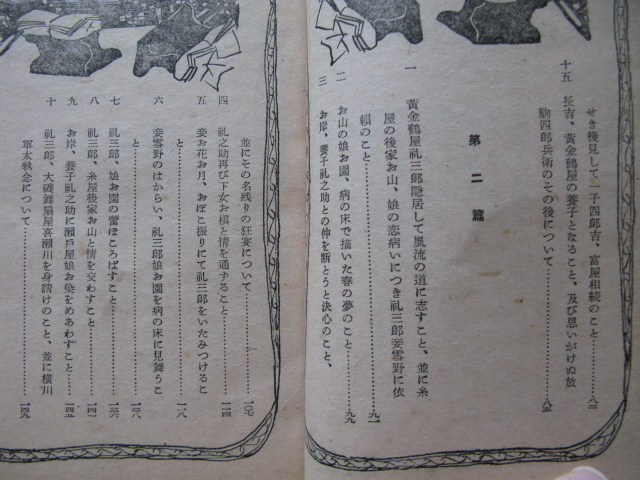 せき後見して一子四郎吉、富屋相続のこと……八三
十五　長吉、黄金鶴屋の養子となること、及び思いがけぬ放
駒四郎兵衛のその後について……八五
第二篇
一　黄金鶴屋礼三郎隠居して風流の道に志すこと、並に糸
屋の後家お山、娘の恋病いにつき礼三郎妾雪野に依
頼のこと……九一
二　お山の娘お園、病の床で描いた春の夢のこと……九九
三　お岸、養子礼之助との仲を断とうと決心のこと、
並にその名残りの狂宴について……一〇七
四　礼之助再び下女お槇と情を通ずること……一一四
五　妾お花お月、おぼこ振りにて礼三郎をいたみつけるこ
と……一一八
六　妾雪野のはからい、礼三郎娘お園を病の床に見舞うこ
と……一二八
七　礼三郎、娘お園の蕾ほころばすこと……一三六
八　礼三郎、糸屋後家お山と情を交わすこと……一四一
九　お岸、養子礼之助に瀬戸屋娘お染をめあわすこと……一四五
十　礼三郎、大磯舞扇屋喜瀬川を身請けのこと、並に横川
軍太執念について……一四九